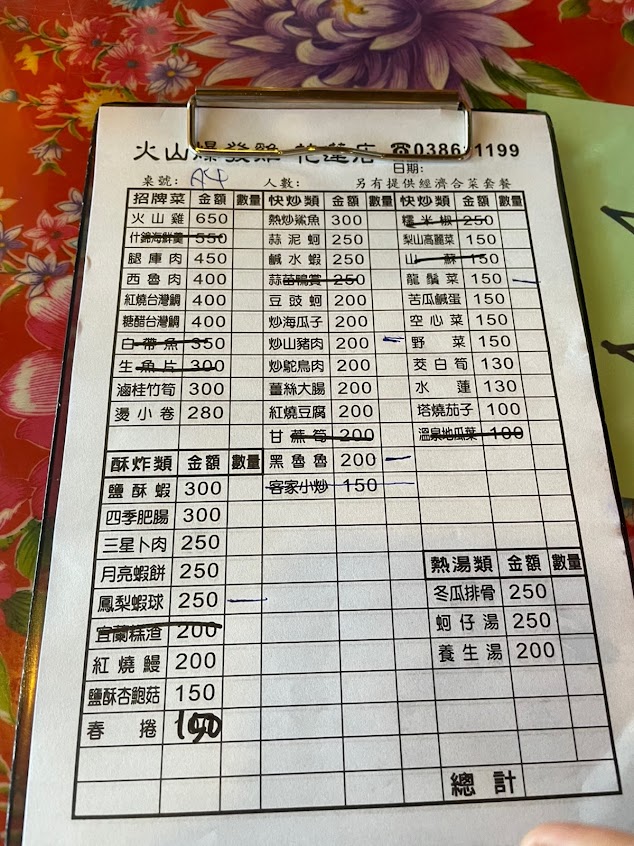 火山爆發雞 花蓮店 ☎0386 1199
日期:
桌號: A4 人數: 另有提供經濟合菜套餐
招牌菜 金額 數量 快炒類 金額 數量 快炒類 金額 數量
火山雞 650 熱炒鯊魚 300 糯米椒 250
什錦海鮮羹 550 蒜泥蚵 250 梨山高麗菜 150
腿庫肉 450 鹹水蝦 250 山蘇 150
西魯肉 400 蒜苗鴨賞 250 龍鬚菜 150
紅燒台灣鯛 400 豆豉蚵 200 苦瓜鹹蛋 150
糖醋台灣鯛 400 炒海瓜子 200 空心菜 150
白帶魚 350 炒山豬肉 200 野菜 150
生魚片 300 炒鴕鳥肉 200 茭白筍 130
滷桂竹筍 300 薑絲大腸 200 水蓮 130
燙小卷 280 紅燒豆腐 200 塔燒茄子 100
甘蔗筍 200 溫泉地瓜葉 100
酥炸類 金額 數量 黑魯魯 200
鹽酥蝦 300 客家小炒 150
四季肥腸 300
三星卜肉 250
月亮蝦餅 250 熱湯類 金額 數量
鳳梨蝦球 250 冬瓜排骨 250
宜蘭糕渣 200 蚵仔湯 250
紅燒鰻 200 養生湯 200
鹽酥杏鮑菇 150
春捲
總計